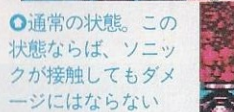 ✪通常の状態。この
状態ならば、ソニッ
クが接触してもダメ
ージにはならない